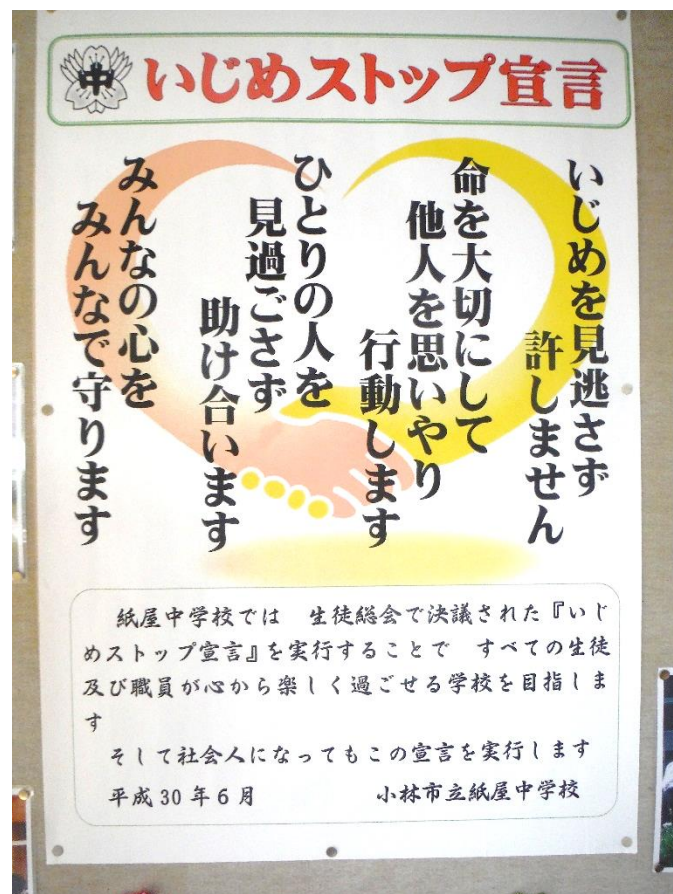 中
いじめストップ宣言
いじめを見逃さず
許しません
命を大切にして
他人を思いやり
行動します
ひとりの人を
見過ごさず
助け合います
みんなの心を
みんなで守ります
紙屋中学校では　生徒総会で決議された『いじ
めストップ宣言』を実行することで　すべての生徒
及び職員が心から楽しく過ごせる学校を目指しま
す
そして社会人になってもこの宣言を実行します
平成30年6月　小林市立紙屋中学校